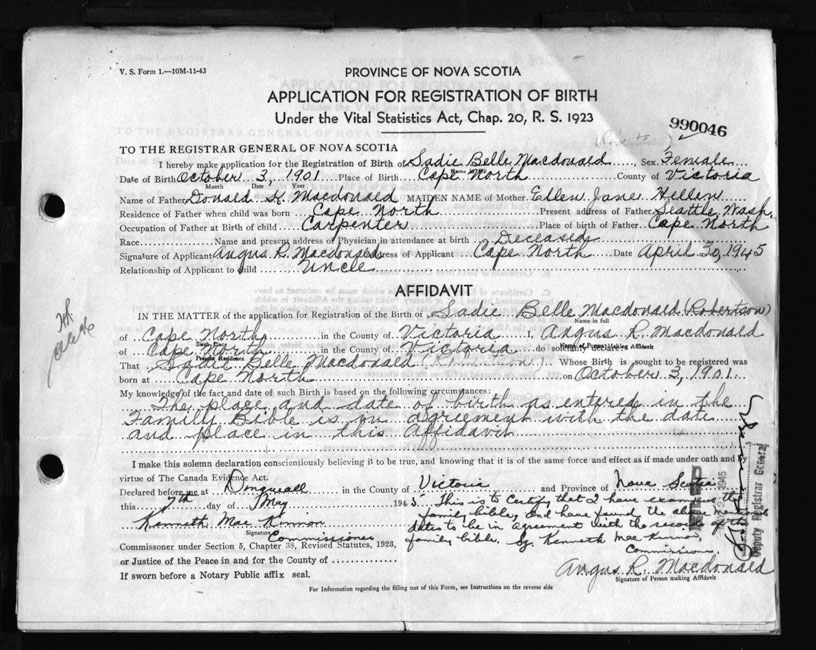 V. S. Form 1.—10M-11-43
PROVINCE OF NOVA SCOTIA
APPLICATION FOR REGISTRATION OF BIRTH
Under the Vital Statistics Act, Chap. 20, R. S. 1923
990046
TO THE REGISTRAR GENERAL OF NOVA SCOTIA
I hereby make application for the Registration of Birth of Sadie Belle Macdonald, Sex Female
Date of Birth October 3, 1901 Place of Birth Cape North County of Victoria
Month Date Year
Name of Father Donald K. Macdonald MAIDEN NAME of Mother Ellen Jane
Residence of Father when child was born Cape North Present address of Father Seattle, Wash.
Occupation of Father at Birth of child Carpenter Place of birth of Father Cape North
Race Name and present address of Physician in attendance at birth Deceased
Signature of Applicant Angus R. Macdonald Address of Applicant Cape North Date April 30, 1945
Relationship of Applicant to child Uncle
AFFIDAVIT
IN THE MATTER of the application for Registration of Birth of Sadie Belle Macdonald (Robertson)
Name in full
of Cape North in the County of Victoria I, Angus R. Macdonald
Birth Place Name of Person making Affidavit
of Cape North in the County of Victoria do solemnly declare:
Present Residence
That Sadie Belle Macdonald Whose Birth is sought to be registered was
born at Cape North on October 3, 1901.
My knowledge of the fact and date of such Birth is based on the following circumstances:
The place and date of birth as entered in the
Family Bible is in agriement with the date
and place in this affidavit
I make this solemn declaration conscientiously believing it to be true, and knowing that it is of the same force and effect as if made under oath and by
virtue of The Canada Evidence Act.
Declared before me at in the County of Victoria and Province of Nova Scotia
this 7th day of May 1945. This is to certify that I have examined the
family bible, and have found the above
dates to be in agreement with the records of the
family bible. Kenneth Mac Kinnon
Commissioner
Kenneth Mac Kinnon
Signature
Commissioner
Commissioner under Section 5, Chapter 38, Revised Statutes, 1923,
or Justice of the Peace in and for the County of
If sworn before a Notary Public affix seal.
Angus R. Macdonald
Signature of Person making Affidavit
For Information regarding the filling out of this Form, see Instructions on the reverse side
Deputy Registrar General
1945